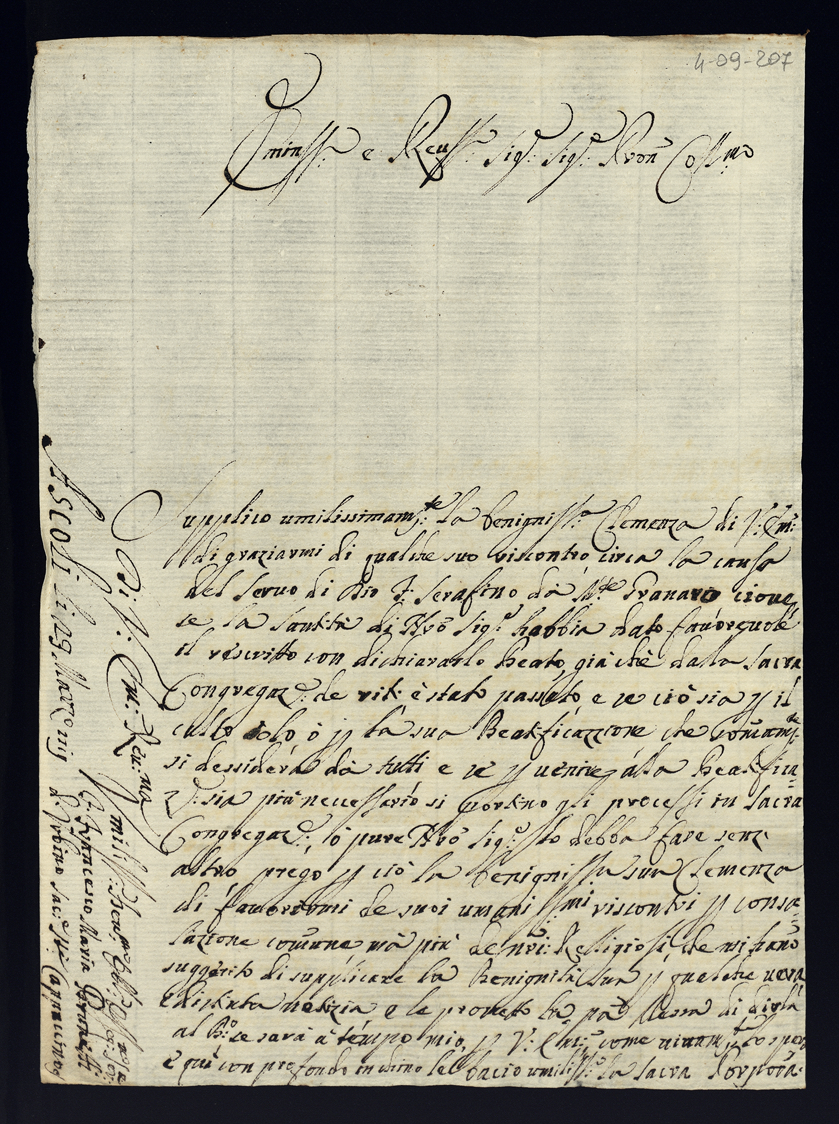 4-09-207
Eminss:º e Reuss:º Sigr: Sigr: Pron Colmo
Supplico umilissimamte: la benigniss:a Clemenza di V: Em:
di graziarmi di qualche suo riscontro circa la causa
del Seruo di Dio F: Serafino da Mte Granaro cioue
se la Santità di Nrõ Sigr: habbia dato fauoreuole
il rescritto con dichiararlo Beato, già chè dalla Sacra
Congregaz: de riti è stato passato e se ciò sia p il
culto solo ò p la sua Beatificazzione che comuñte
si dessidera da tutti e se p uenire alla Beatifica
z: sia più neccessario si portino gli processi in Sacra
Congregaz:, ò pure Nrõ Sigr: lo debba fare senz
altro prego p ciò la benignissa sua Clemenza
di fauorirmi de suoi umanissmi riscontri p conso-
lazione comune mà più de nri: Relligiosi, che mi hano
suggerito di supplicare la Benignità sua p qualche uera
e distinta notizia e le prometto la pa Messa di dirla
al Bo: se sarà à tempo mio, p V: Em: come uiuamte: lo spero
e quì con profondo inchino le bacio umiliss:te la Sacra Porpora.
Di V: Em: Reu:ma
Ascoli li 29 Marzo
F: Francesco Maria
d'Vrbino Sace: Capuccino